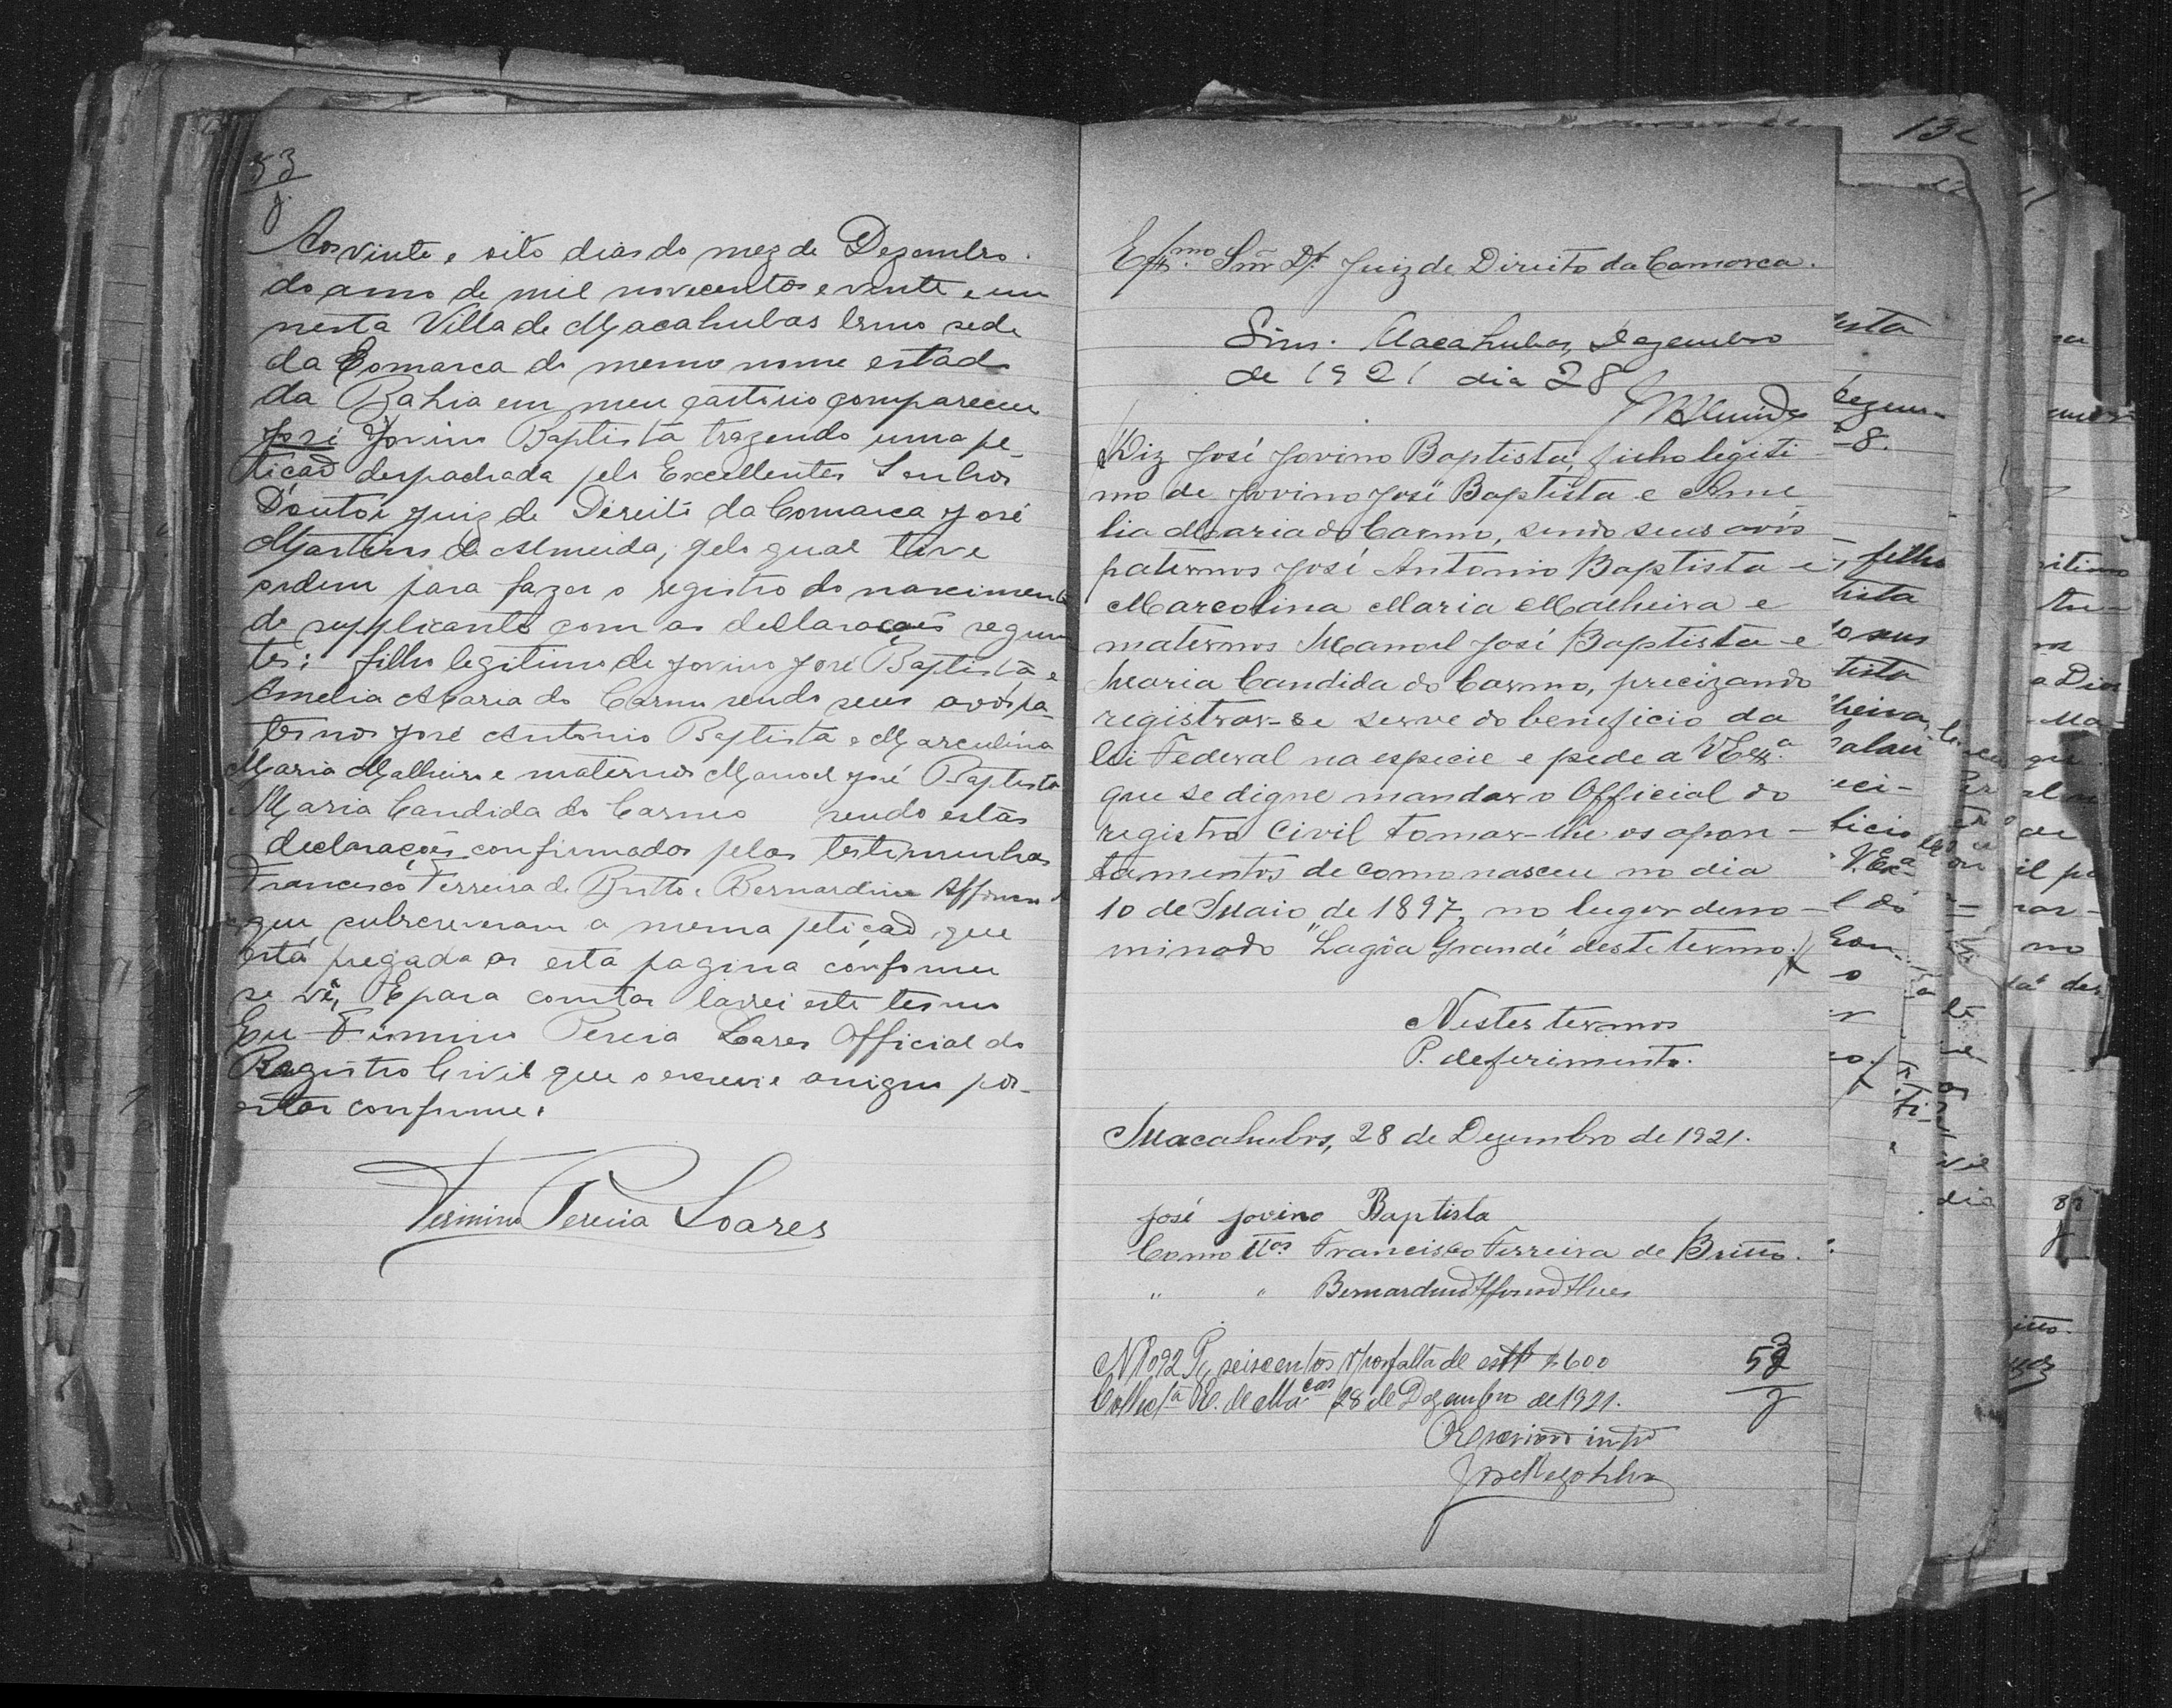 53
J.
Aos vinte e oito dias do mez de Dezembro
do anno de mil novecentos e vinte e um
nesta Villa de Macahubas termo sede
da Comarca do mesmo nome estado
da Bahia em meu cartorio compareceu
José Jovino Baptista trazendo uma pe-
tição despachada pelo Excellentes Senhor
Doutor Juiz de Direito da Comarca José
Martins de Almeida, pelo qual tive
ordem para fazer o registro do nascimento
do supplicante com as declarações seguin
tes: filho legitimo de Jovino José Baptista e
Amelia Maria do Carmo sendo seus avós pa-
ternos José Antonio Baptista e Marculina
Maria Malheiro e maternos Manoel José Baptista
Maria Candida do Carmo sendo estas
declarações confirmadas pelas testemunhas
Francisco Ferreira de Britto e Bernardino Affonso
que subscreveram a mesma petição que
está pregada a esta pagina conforme
se vê, E para constar lavrei este termo
Eu Firmino Pereira Soares Official do
Registro Civil que o escrevi e assigno por
estar conforme.
Firmino Pereira Soares
132
Exmo. Snr. Dr. Juiz de Direito da Comarca.
Sim. Macahubas, Dezembro
de 1921 dia 28
MAlmeida
Diz José Jovino Baptista, filho legiti-
mo de Jovino José Baptista e Ame
lia Maria do Carmo, sendo seus avós
paternos José Antonio Baptista e
Marcolina Maria Malheira e
maternos Manoel José Baptista e
Maria Candida do Carmo, precizando
registrar-se serve do beneficio da
lei Federal na especie e pede a V Exa.
que se digne mandar o Official do
registro Civil tomar-lhe os apon-
tamentos de como nasceu no dia
10 de Maio de 1897, no lugar deno-
minado "Lagôa Grande" deste termo.
Nestes termos
P. deferimento.
Macahubas, 28 de Dezembro de 1921.
José Jovino Baptista
Como ttas Francisco Ferreira de Britto.
" " Bernardino Affonso Alves
N 1092 Pg seiscentos r por falta de estp $600
Collecta E. de Macas 28 de Dezembro de 1921.
53
J
O Escrivão intº